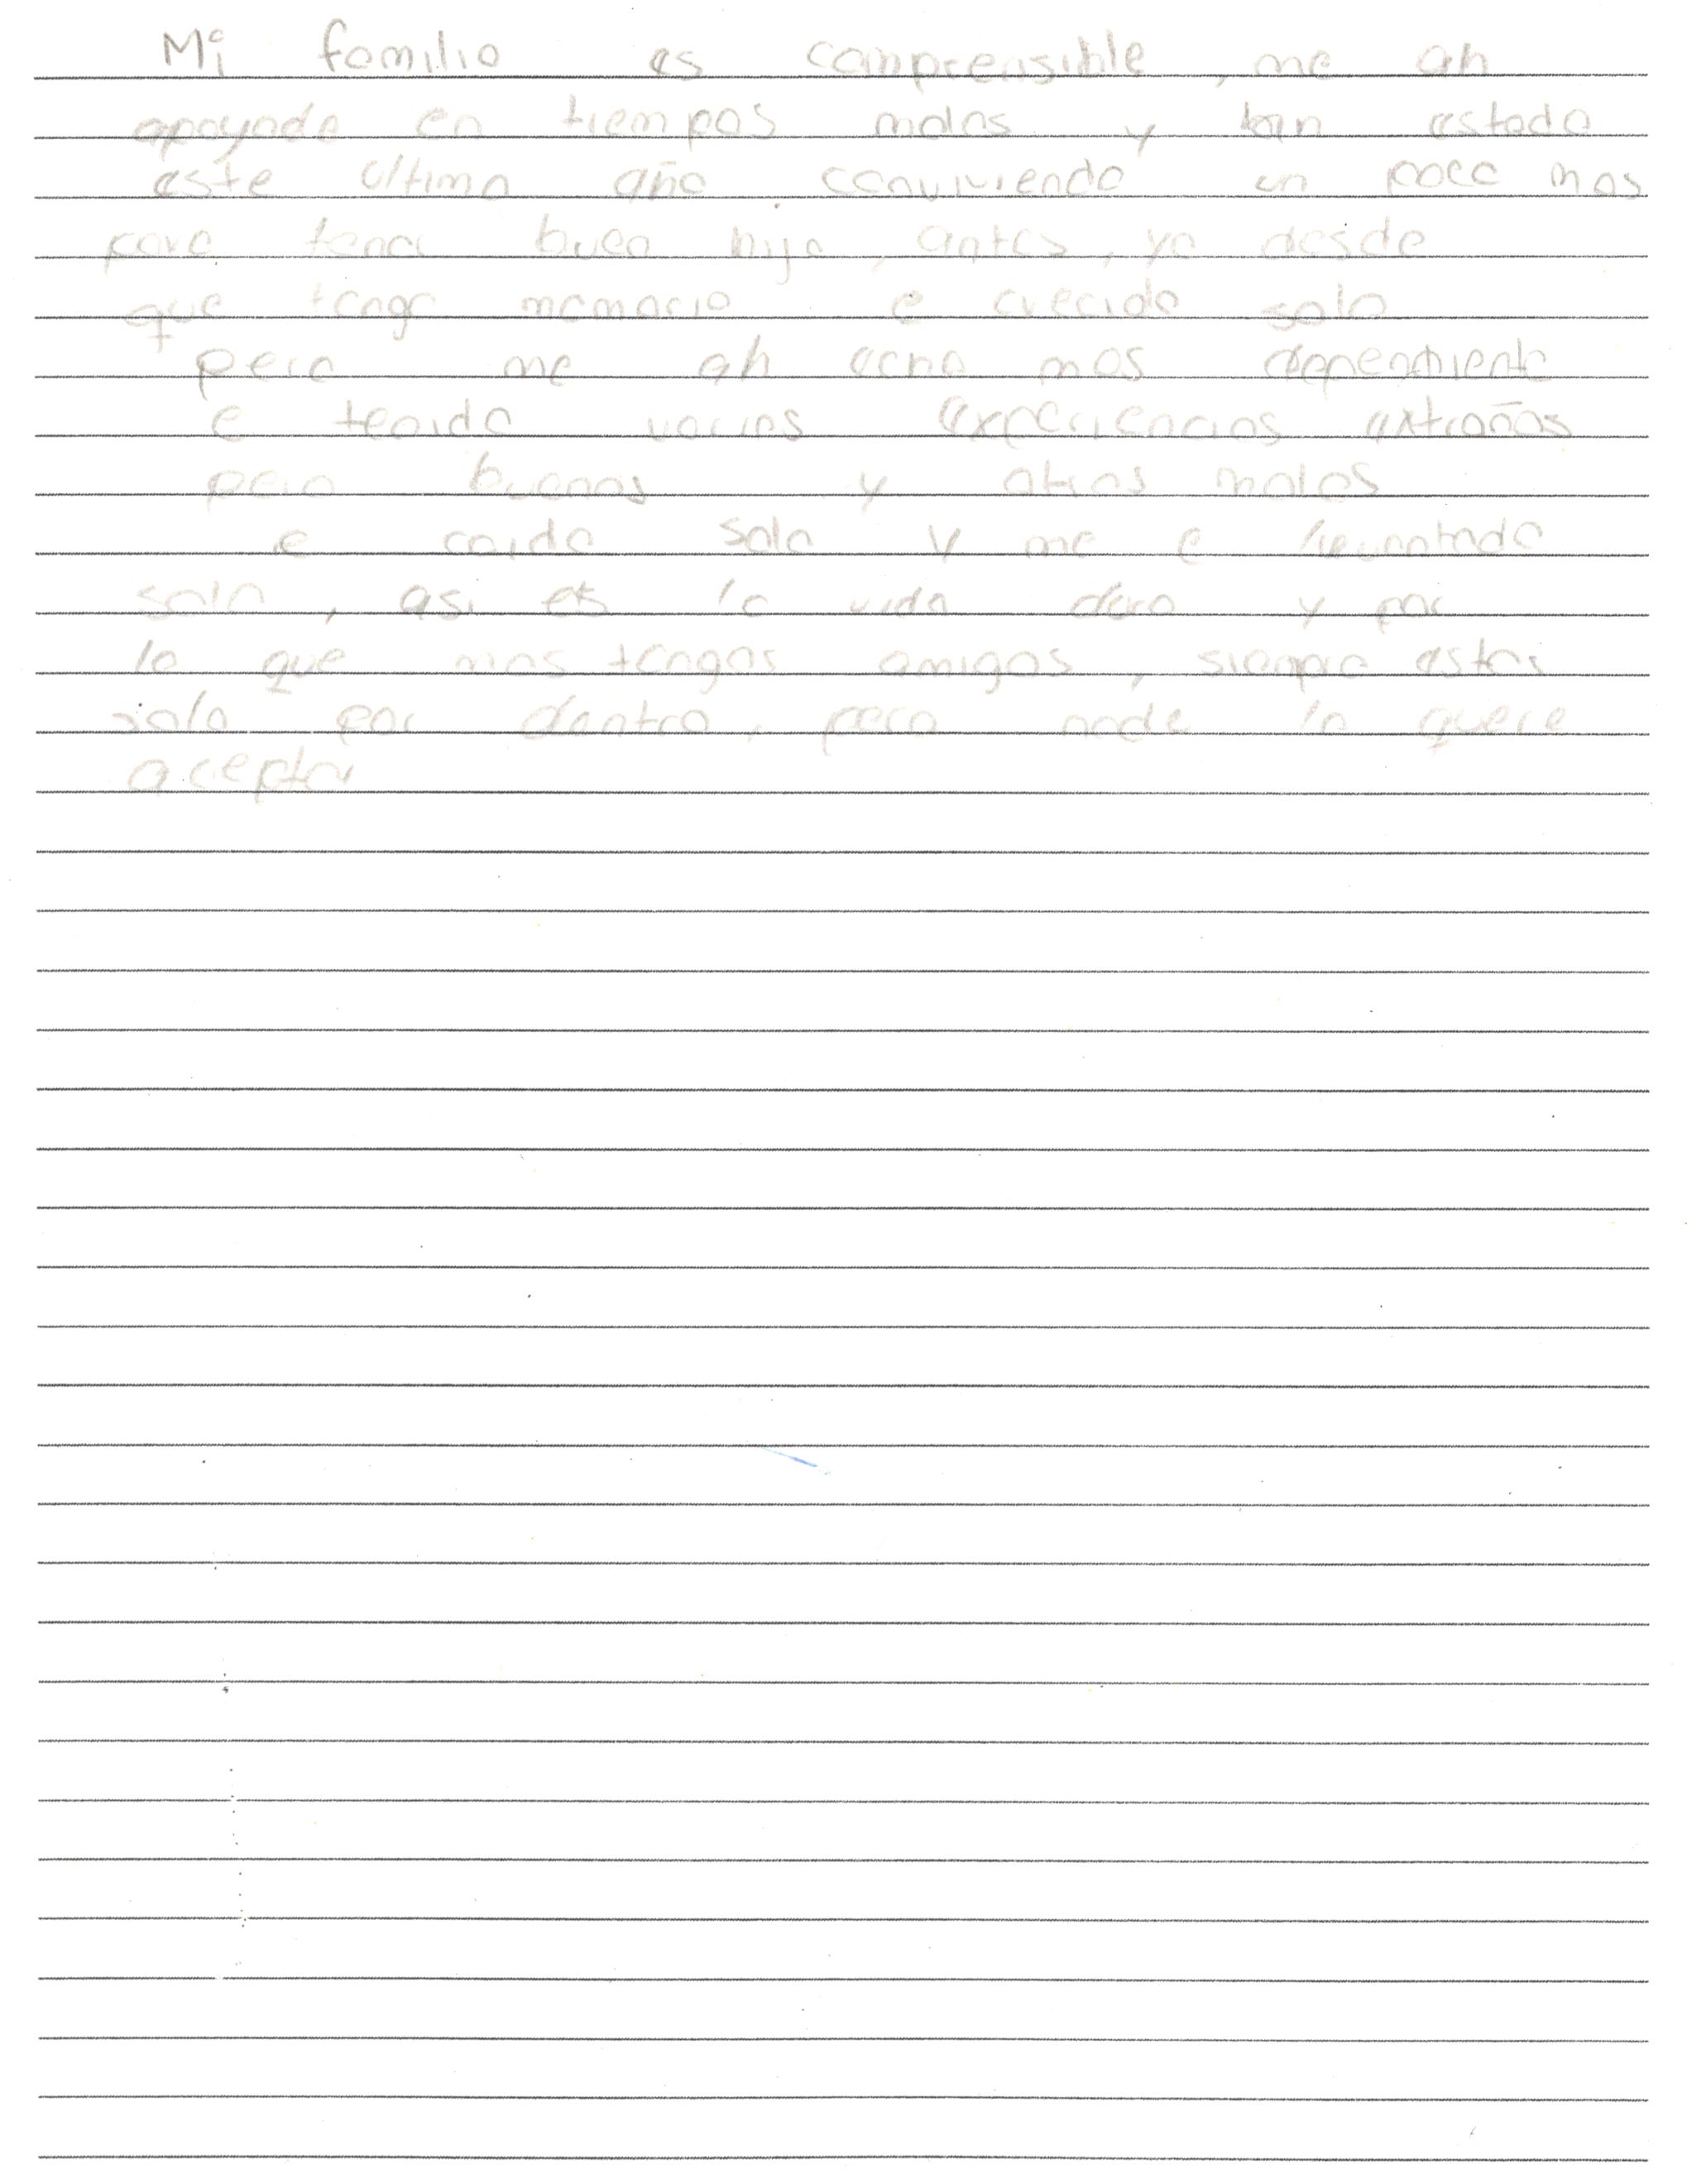 Mi familia es comprensible, me ah
apoyado en tiempos malos y han estado
este ultimo año conviviendo un poco mas
para tener buen hijo, antes, yo desde
que tengo memoria e crecido solo
pero me ah echo mas dependiente
e tenido varias experiencias extrañas
pero buenas y otras malas
e caido solo y me e levantado
solo, asi es la vida dura y por
lo que mas tengas amigos, siempre estas
solo por dentro, pero nade lo quere
aceptar